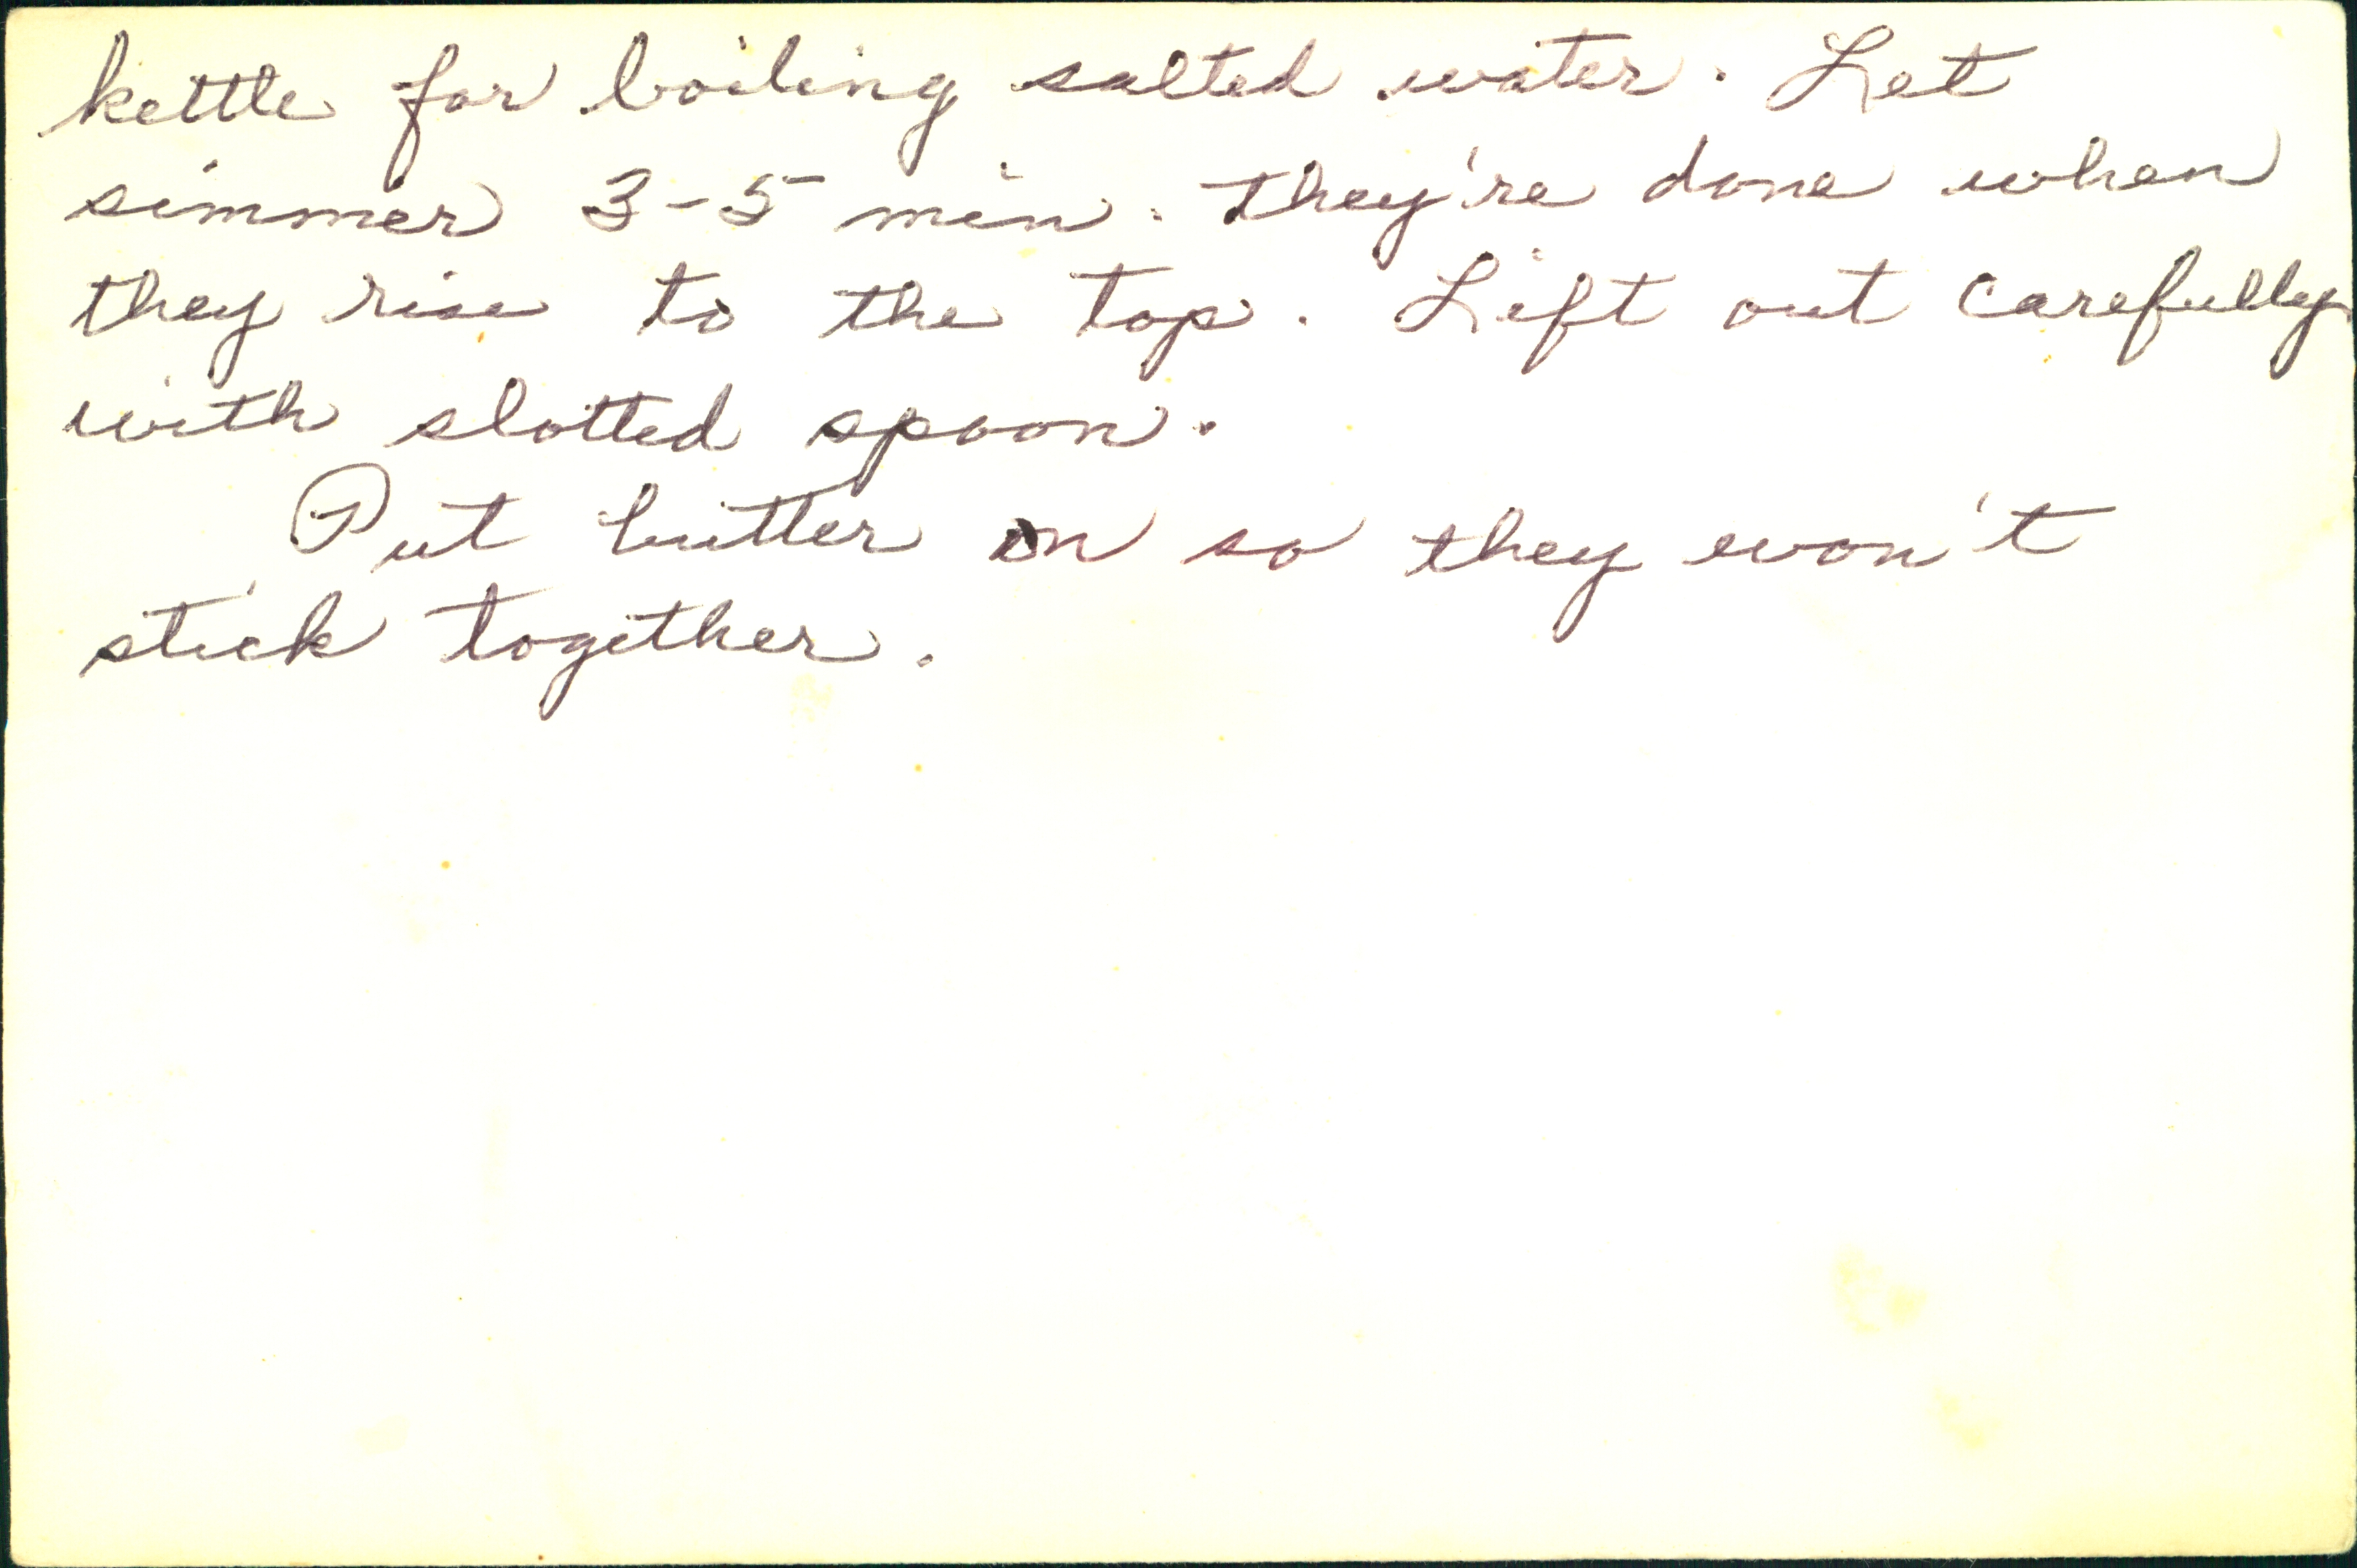 kettle for boiling salted water. Let
simmer 3-5 min. They're done when
they rise to the top. Lift out carefully
with slotted spoon.
Put butter on so they won't
stick together.